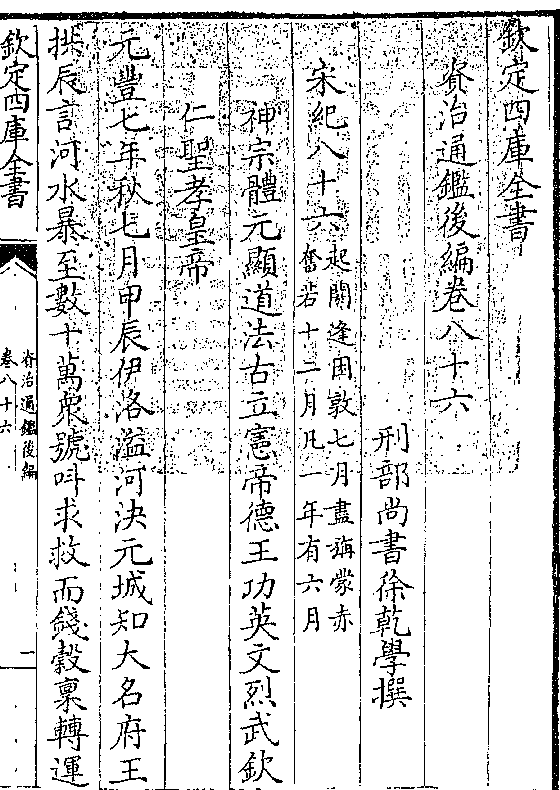 欽定四庫全書
資治通鑑後編卷八十六
刑部尚書徐乾學撰
宋紀八十六起閼逢困敦七月盡旃蒙赤
奮若十二月凡一年有六月
神宗體元顯道法古立憲帝德王功英文烈武欽
仁聖孝皇帝
元豐七年秋七月甲辰伊洛溢河決元城知大名府王
拱辰言河水暴至數十萬衆號呌求救而錢穀稟轉運
欽定四庫全書
資治通鑑後編
卷八十六
一